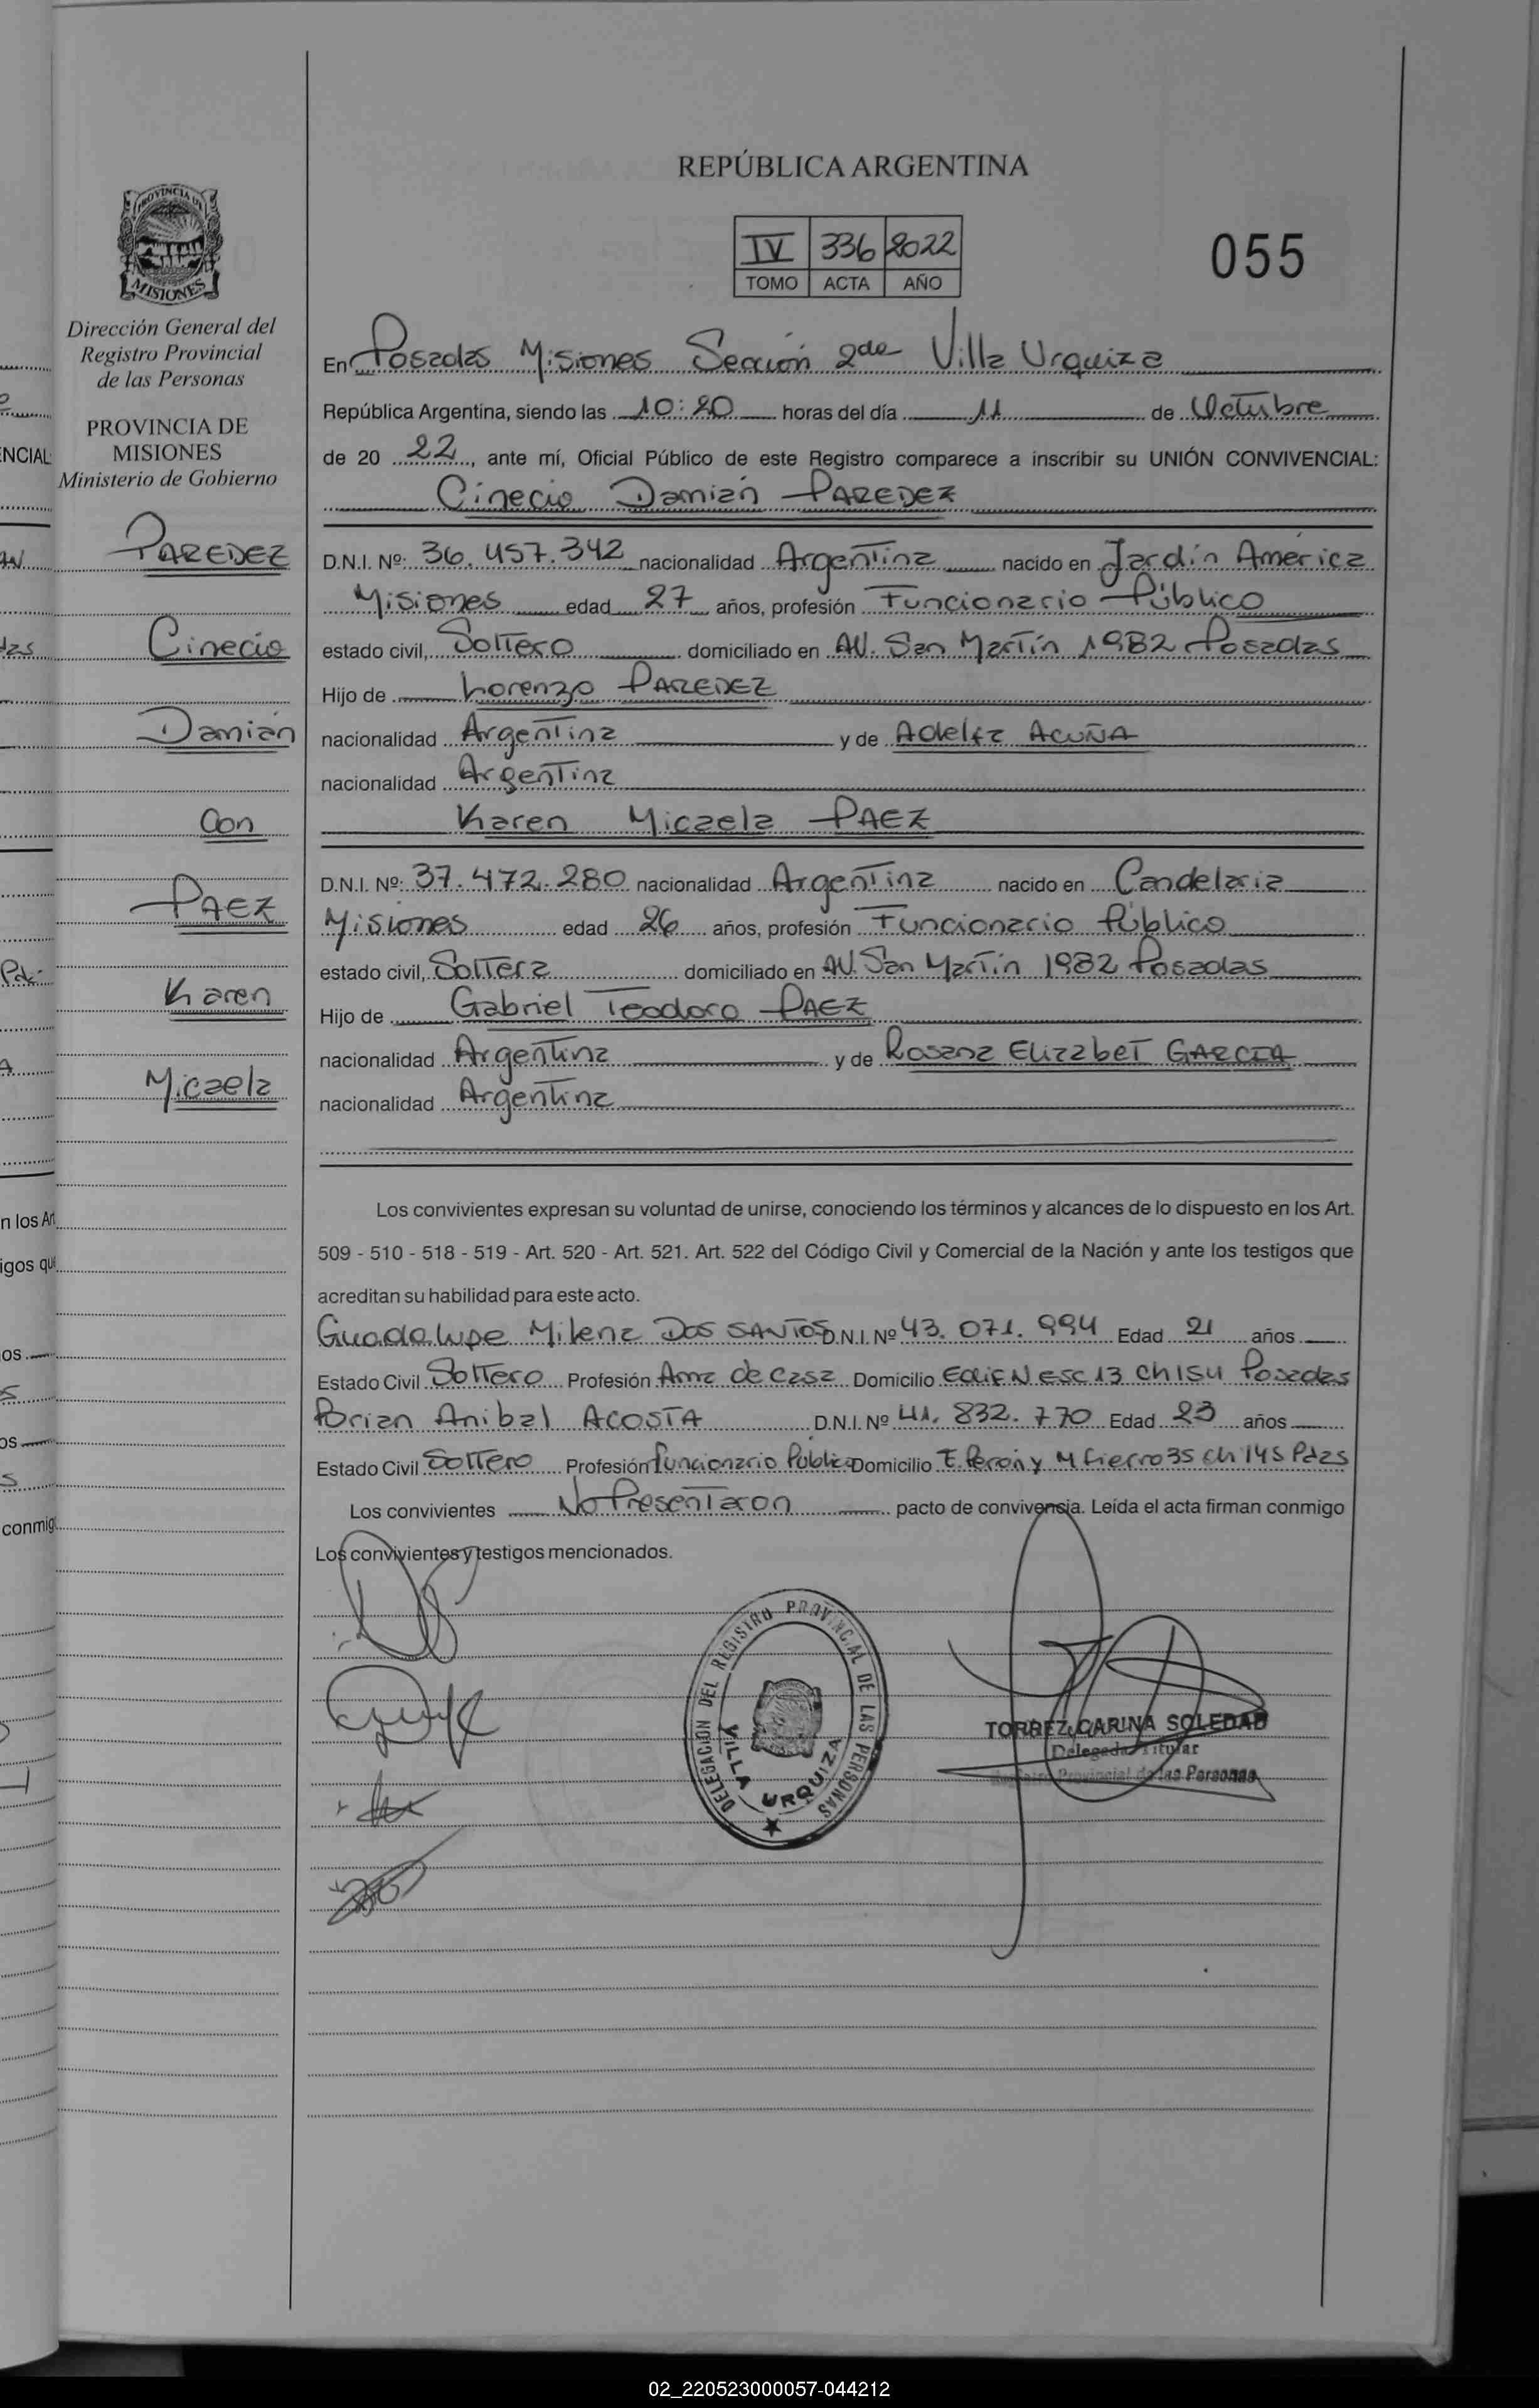 REPÚBLICA ARGENTINA
IV 336 2022
TOMO ACTA AÑO
055
PROVINCIA DE
MISIONES
Dirección General del
Registro Provincial
de las Personas
PROVINCIA DE
MISIONES
Ministerio de Gobierno
PAREDEZ
Cinecio
Damián
Con
PAEZ
Karen
Micaela
En Posadas Misiones Sección 2da Villa Urquiza
República Argentina, siendo las 10:20 horas del día 11 de Octubre
de 20 22, ante mí, Oficial Público de este Registro comparece a inscribir su UNIÓN CONVIVENCIAL:
Cinecio Damián PAREDEZ
D.N.I. Nº: 36.457.342 nacionalidad Argentina nacido en Jardín América
Misiones edad 27 años, profesión Funcionario Público
estado civil, Soltero domiciliado en AV. San Martín 1982 Posadas
Hijo de Lorenzo PAREDEZ
nacionalidad Argentina y de Adelfa ACUÑA
nacionalidad Argentina
Karen Micaela PAEZ
D.N.I. Nº: 37.472.280 nacionalidad Argentina nacido en Candelaria
Misiones edad 26 años, profesión Funcionario Público
estado civil, Soltera domiciliado en AV. San Martín 1982 Posadas
Hijo de Gabriel Teodoro PAEZ
nacionalidad Argentina y de Rosana Elizabet GARCIA
nacionalidad Argentina
Los convivientes expresan su voluntad de unirse, conociendo los términos y alcances de lo dispuesto en los Art.
509 - 510 - 518 - 519 - Art. 520 - Art. 521. Art. 522 del Código Civil y Comercial de la Nación y ante los testigos que
acreditan su habilidad para este acto.
Guadalupe Milena DOS SANTOS D.N.I. Nº 43.071.994 Edad 21 años
Estado Civil Soltero Profesión Ama de Casa Domicilio Edif N esc 13 ch 154 Posadas
Brian Anibal ACOSTA D.N.I. Nº 41.832.770 Edad 23 años
Estado Civil Soltero Profesión funcionario Público Domicilio E. Perón y M fierro 35 ch 145 Pdas
Los convivientes No Presentaron pacto de convivencia. Leída el acta firman conmigo
Los convivientes y testigos mencionados.
DELEGACIÓN DEL REGISTRO PROVINCIAL DE LAS PERSONAS
VILLA URQUIZA
TORREZ CARINA SOLEDAD
Delegada Titular
Registro Provincial de las Personas
02_220523000057-044212